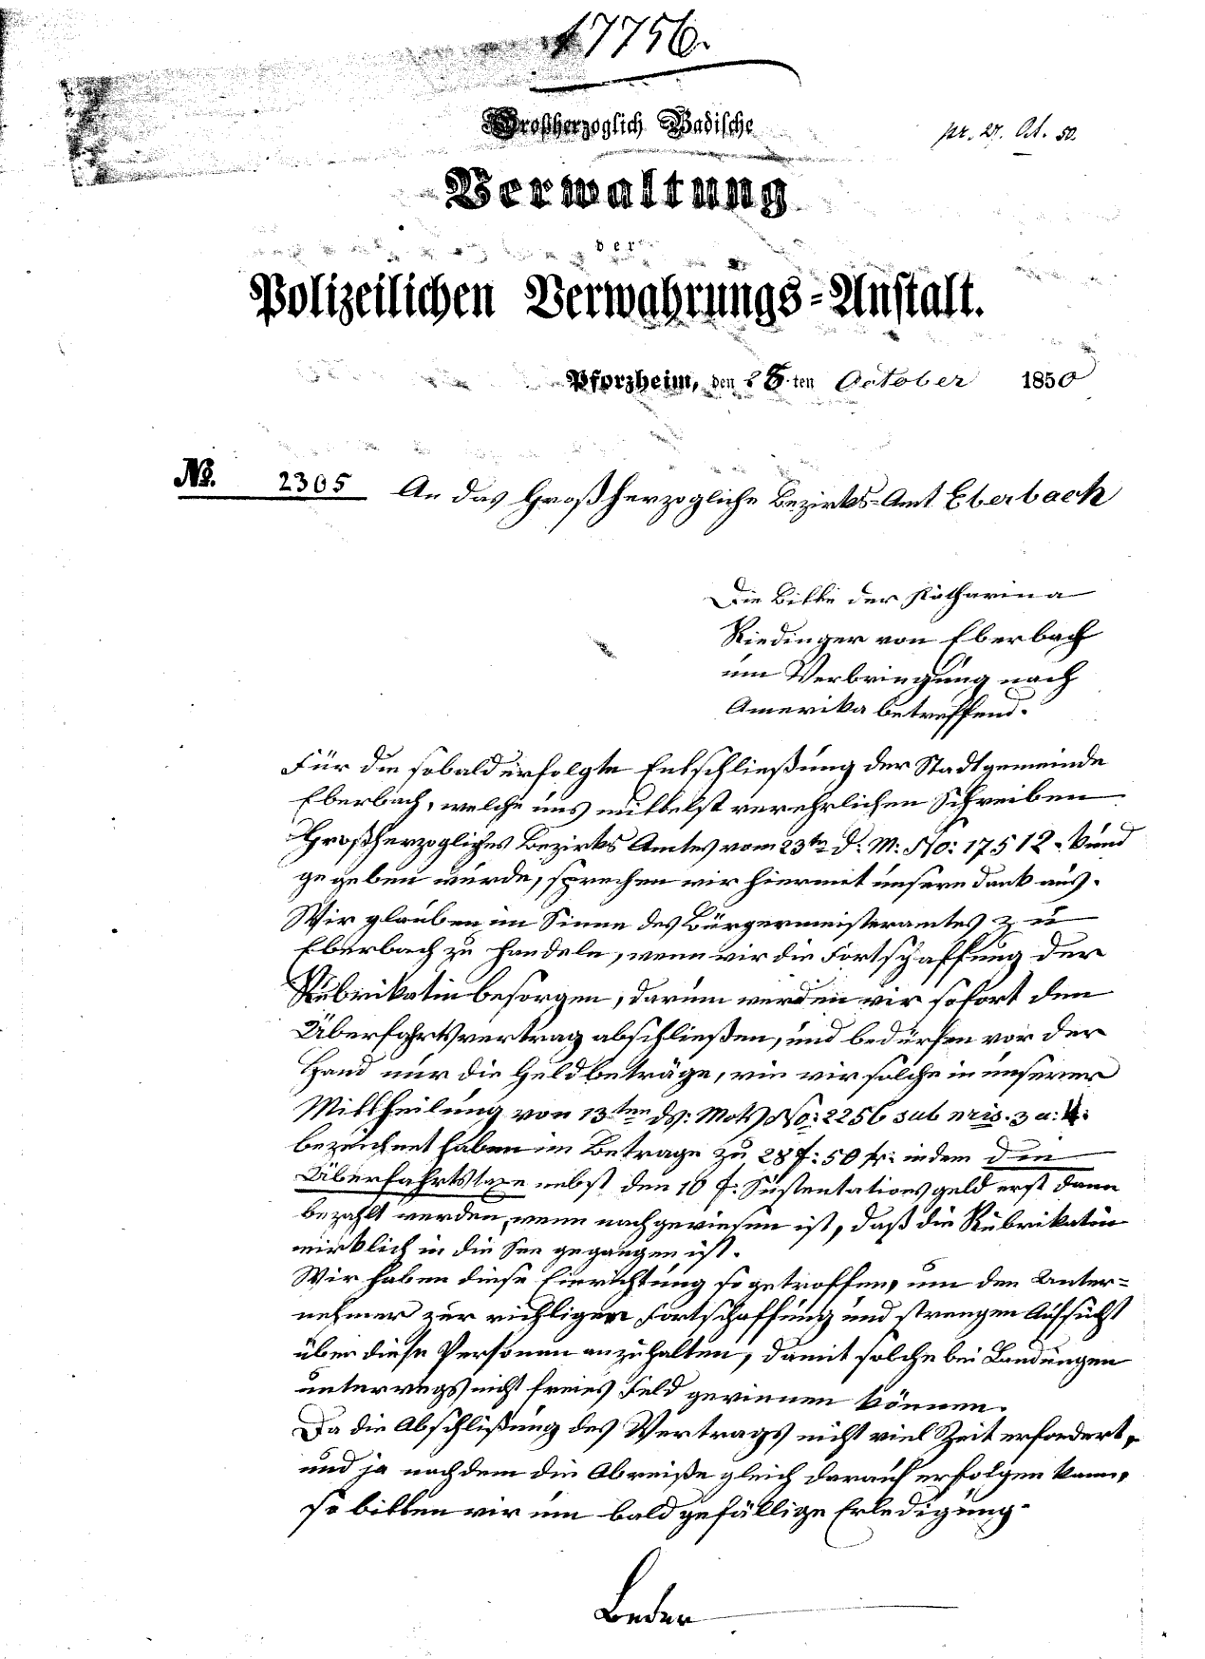 17756.
Großherzoglich Badische
pr. 27. Oct. 50.
Verwaltung
der
Polizeilichen Verwahrungs-Anstalt.
Pforzheim, den 26ten October 1850
No. 2305 An das Großherzogliche Bezirks-Amt Eberbach
Die Bitte der Katharina
Riedinger von Eberbach
um Verbringung nach
Amerika betreffend.
Für die sobald erfolgte Entschließung der Stadtgemeinde
Eberbach, welche uns mittelst verehrlichen Schreiben
Großherzogliches Bezirks Amtes vom 23ten d: M: No: 17512. kund
gegeben wurde, sprechen wir hiermit unsern dank aus.
Wir glauben im Sinne des Bürgermeisteramtes zu
Eberbach zu handeln, wenn wir die Fortschaffung der
Rubrikatin besorgen, darum werden wir sofort den
Überfahrtsvertrag abschließen, und bedürfen vor der
Hand nur die Geldbeträge, wie wir solche in unserer
Mittheilung von 13ten ds: Mots No: 2256 sub nris. 3 a: 4:
bezeichnet haben im Betrage zu 28 f: 50 kr: indem die
Überfahrtstaxe nebst den 10 f: Sustentationsgeld erst dann
bezahlt werden, wenn nachgewiesen ist, daß die Rubrikatin
wirklich in die See gegangen ist.
Wir haben diese Einrichtung so getroffen, um den Unter=
nehmer zur richtigen Fortschaffung und strengen Aufsicht
über diese Personen anzuhalten, damit solche bei Landungen
unterwegs nicht freies Feld gewinnen können.
Da die Abschlißung des Vertrags nicht viel Zeit erfordert,
und je nachdem die Abreiße gleich darauf erfolgen kann,
so bitten wir um bald gefällige Erledigung.